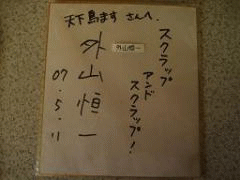 天下鳥ます さんへ。
スクラップ
アンド
スクラップ！
外山恒一
外山恒一
07.5.11